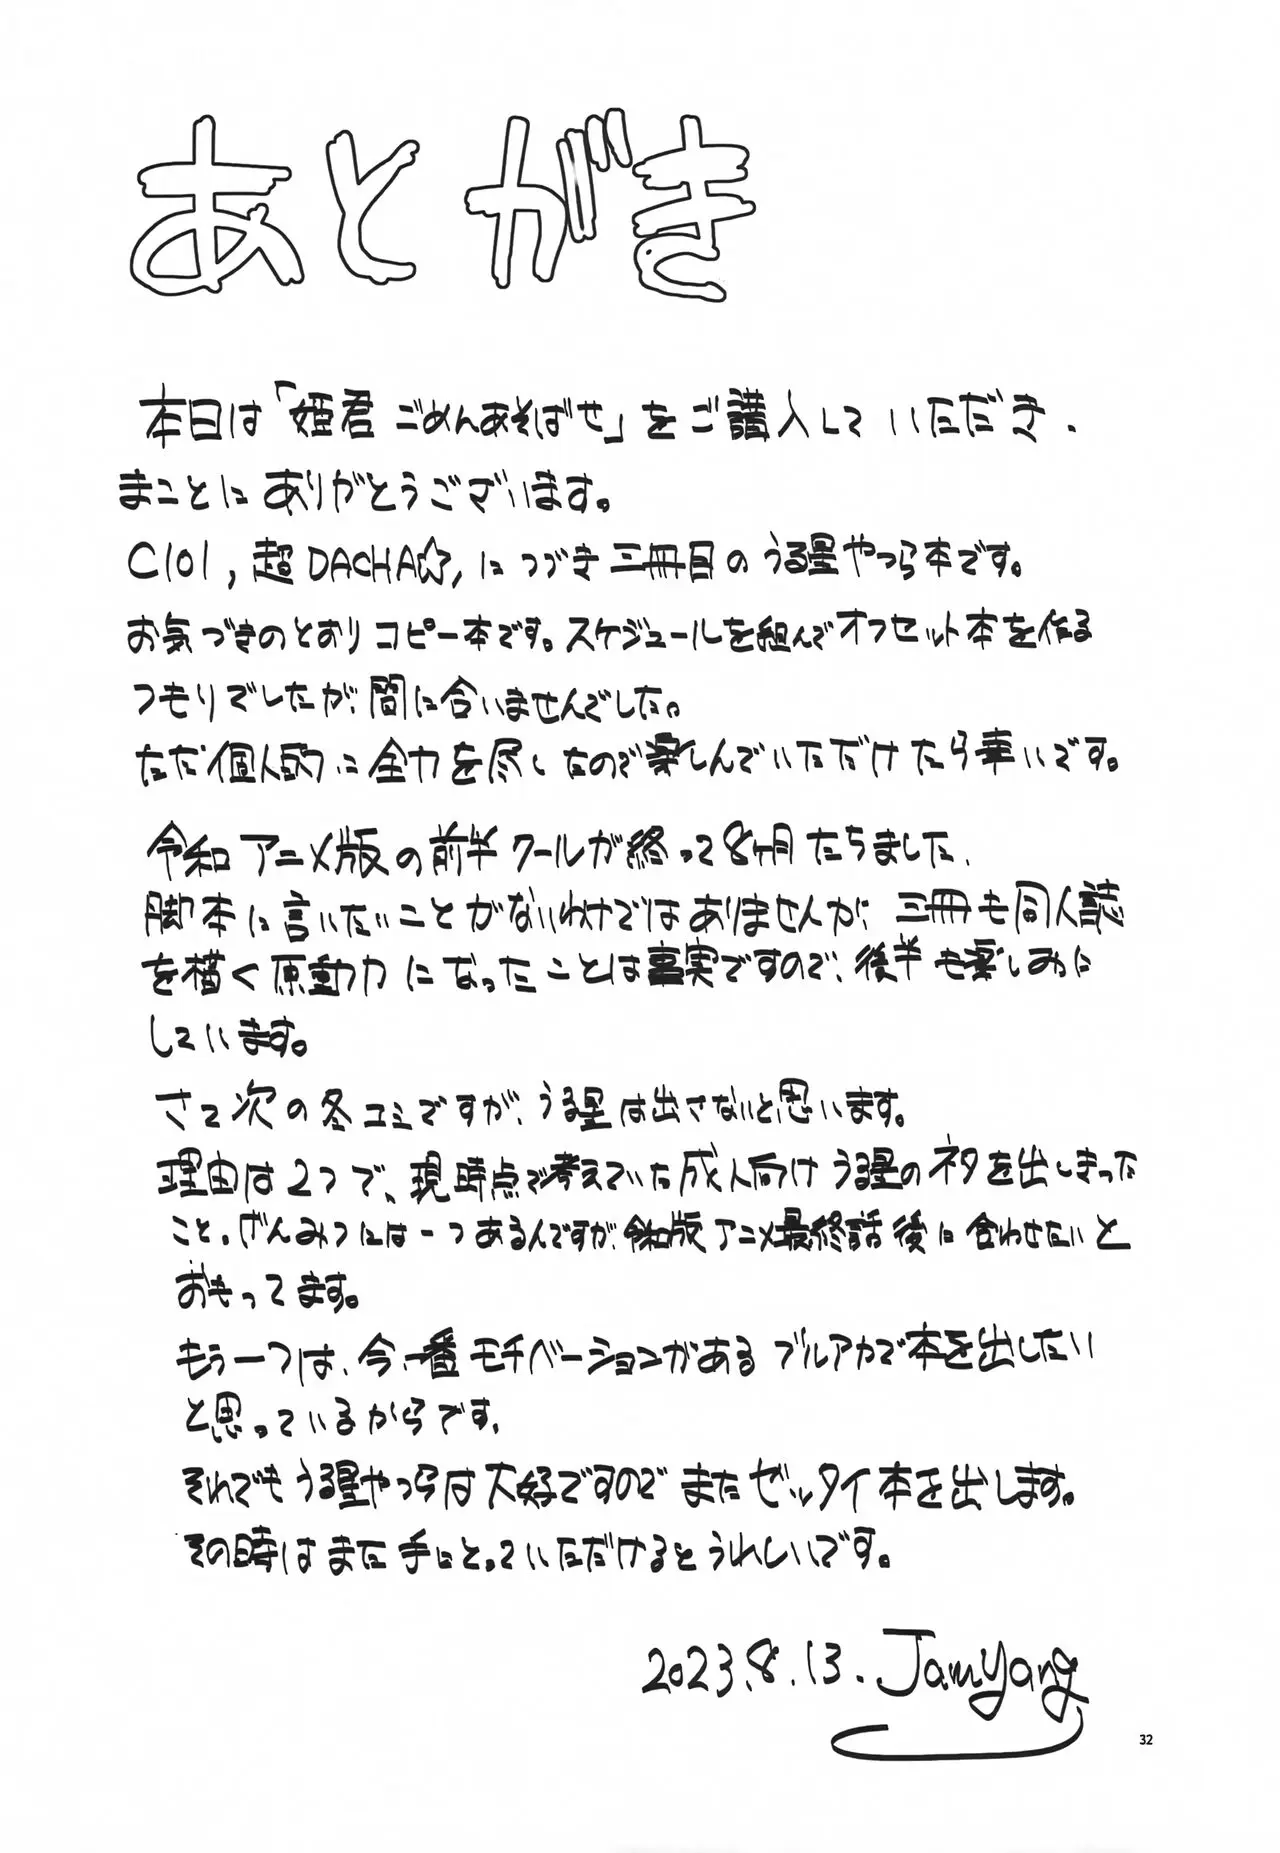 あとがき
本日は「姫君ごめんあそばせ」をご購入していただき、
まことにありがとうございます。
C101,超DACHA☆,につづき三冊目のうる星やつら本です。
お気づきのとおりコピー本です。スケジュールを組んでオフセット本を作る
つもりでしたが、間に合いませんでした。
ただ個人的に全力を尽したので楽しんでいただけたら幸いです。
令和アニメ版の前半クールが終って8ヶ月たちました、
脚本に言いたいことがないわけではありませんが、三冊も同人誌
を描く原動力になったことは事実ですので、後半も楽しみに
しています。
さて次の冬コミですが、うる星は出さないと思います。
理由は2つで、現時点で考えていた成人向けうる星のネタを出しきった
こと。げんみつには一つあるんですが、令和版アニメ最終話後に合わせたいと
おもってます。
もう一つは、今、一番モチベーションがあるブルアカで本を出したい
と思っているからです、
それでもうる星やつらは大好ですのでまたゼッタイ本を出します。
その時はまた手にとっていただけるとうれしいです。
2023.8.13. Jamyang
32